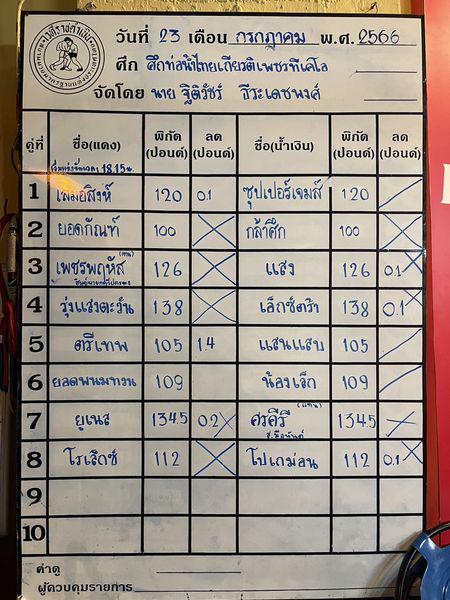 วันที่ 23 เดือน กรกฎาคม พ.ศ. 2566
ศึก ศึกท่อน้ำไทยเกียรติเพชรทีเคโอ
จัดโดย นาย ฐิติวัชร์ ธีระเดชพงศ์
คู่ที่ ชื่อ(แดง) พิกัด (ปอนด์) ลด (ปอนด์) ชื่อ(น้ำเงิน) พิกัด (ปอนด์) ลด (ปอนด์)
18.15 น.
1 เสมอสิงห์ 120 0.1 ซุปเปอร์เจมส์ 120
2 ยอดกัณฑ์ 100 กล้าศึก 100
3 เพชรพฤหัส (แทน) 126 แสง 126 0.1
4 รุ่งแสงตะวัน 138 เล็กซ์ตร้า 138 0.1
5 ตรีเทพ 105 1.4 แสนแสบ 105
6 ยอดพนมทวน 109 น้องเร็ก 109
7 ยูเนส 134.5 0.2 ศรคีรี (แทน) 134.5
8 โรเล็กซ์ 112 โปเกม่อน 112 0.1
9
10
คำดู
ผู้ควบคุมรายการ